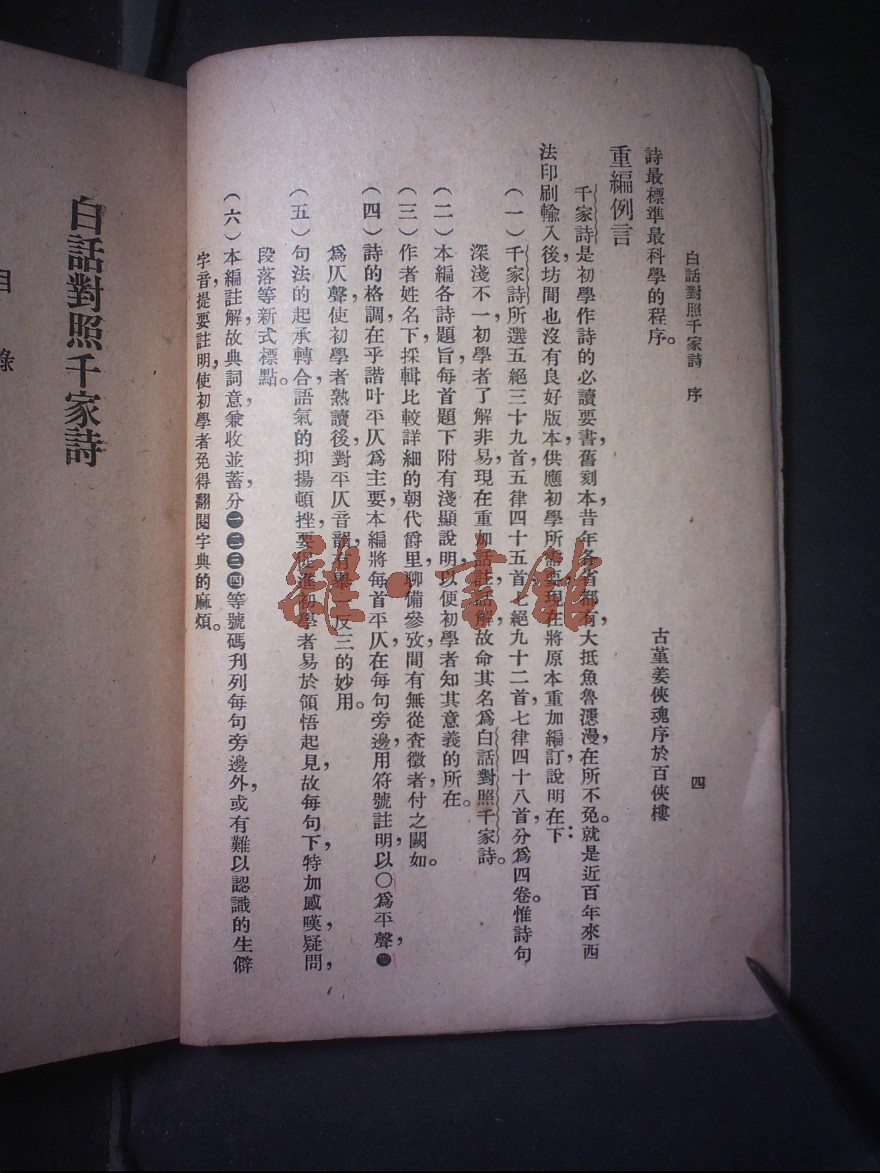 白話對照千家詩 序 四
詩最標準最科學的程序。
古堇姜俠魂序於百俠樓
重編例言
千家詩是初學作詩的必讀要書，舊刻本昔年各省都有，大抵魚魯漶漫，在所不免。就是近百年來西
法印刷輸入後，坊間也沒有良好版本，供應初學所需要，現在將原本重加編訂，說明在下：
（一）千家詩所選五絕三十九首，五律四十五首，七絕九十二首，七律四十八首，分爲四卷。惟詩句
深淺不一，初學者了解非易，現在重加話註話解，故命其名爲白話對照千家詩。
（二）本編各詩題旨，每首題下附有淺顯說明，以便初學者知其意義的所在。
（三）作者姓名下，採輯比較詳細的朝代爵里，聊備參攷，間有無從查徵者，付之闕如。
（四）詩的格調，在乎諧叶平仄爲主要，本編將每首平仄，在每句旁邊，用符號註明，以○爲平聲，●
爲仄聲，使初學者熟讀後，對平仄音韻，有舉一反三的妙用。
（五）句法的起承轉合，語氣的抑揚頓挫，要促進初學者易於領悟起見，故每句下，特加感嘆，疑問，
段落等新式標點。
（六）本編註解，故典詞意，兼收並蓄，分㊀㊁㊂㊃等號碼，刋列每句旁邊外，或有難以認識的生僻
字音，提要註明，使初學者免得翻閱字典的麻煩。
白話對照千家詩
目 錄
雜·書館